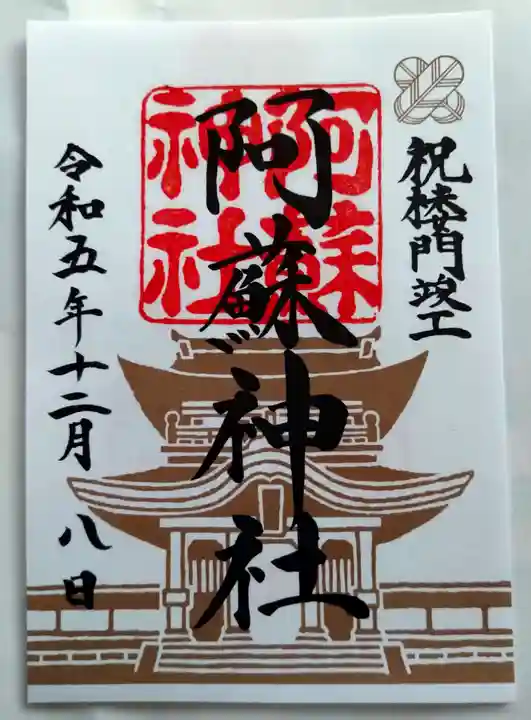 祝楼門竣工
阿蘇神社
阿蘇
神社
令和五年十二月 八日